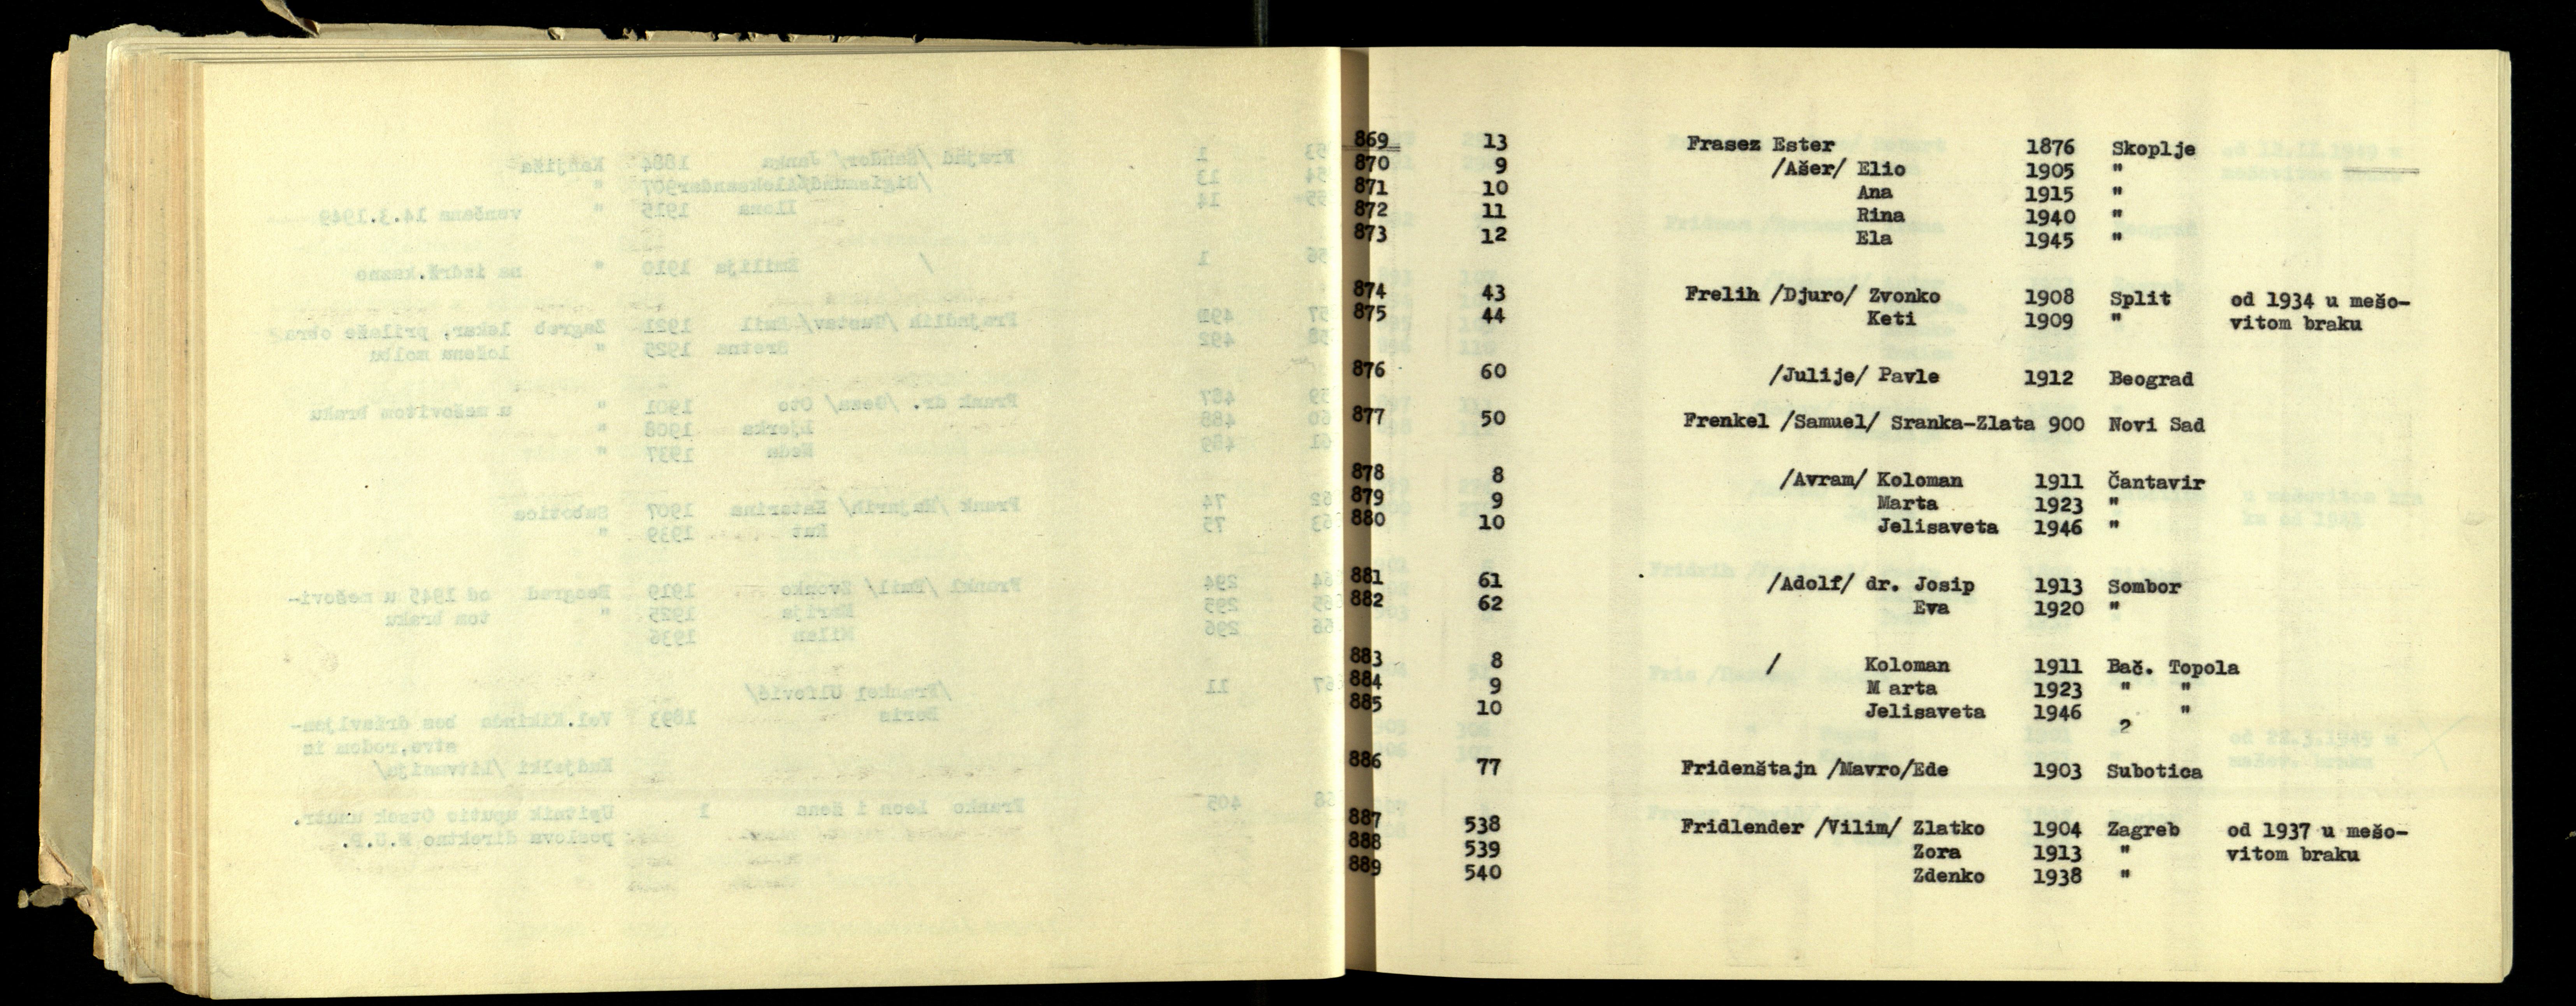 869 13 Frasez Ester 1876 Skoplje
870 9 /Ašer/ Elio 1905 "
871 10 Ana 1915 "
872 11 Rina 1940 "
873 12 Ela 1945 "
874 43 Frelih /Djuro/ Zvonko 1908 Split od 1934 u mešo-
875 44 Keti 1909 " vitom braku
876 60 /Julije/ Pavle 1912 Beograd
877 50 Frenkel /Samuel/ Sranka-Zlata 900 Novi Sad
878 8 /Avram/ Koloman 1911 Čantavir
879 9 Marta 1923 "
880 10 Jelisaveta 1946 "
881 61 /Adolf/ dr. Josip 1913 Sombor
882 62 Eva 1920 "
883 8 / Koloman 1911 Bač. Topola
884 9 M arta 1923 " "
885 10 Jelisaveta 1946 ? "
886 77 Fridenštajn /Mavro/Ede 1903 Subotica
887 538 Fridlender /Vilim/ Zlatko 1904 Zagreb od 1937 u mešo-
888 539 Zora 1913 " vitom braku
889 540 Zdenko 1938 "